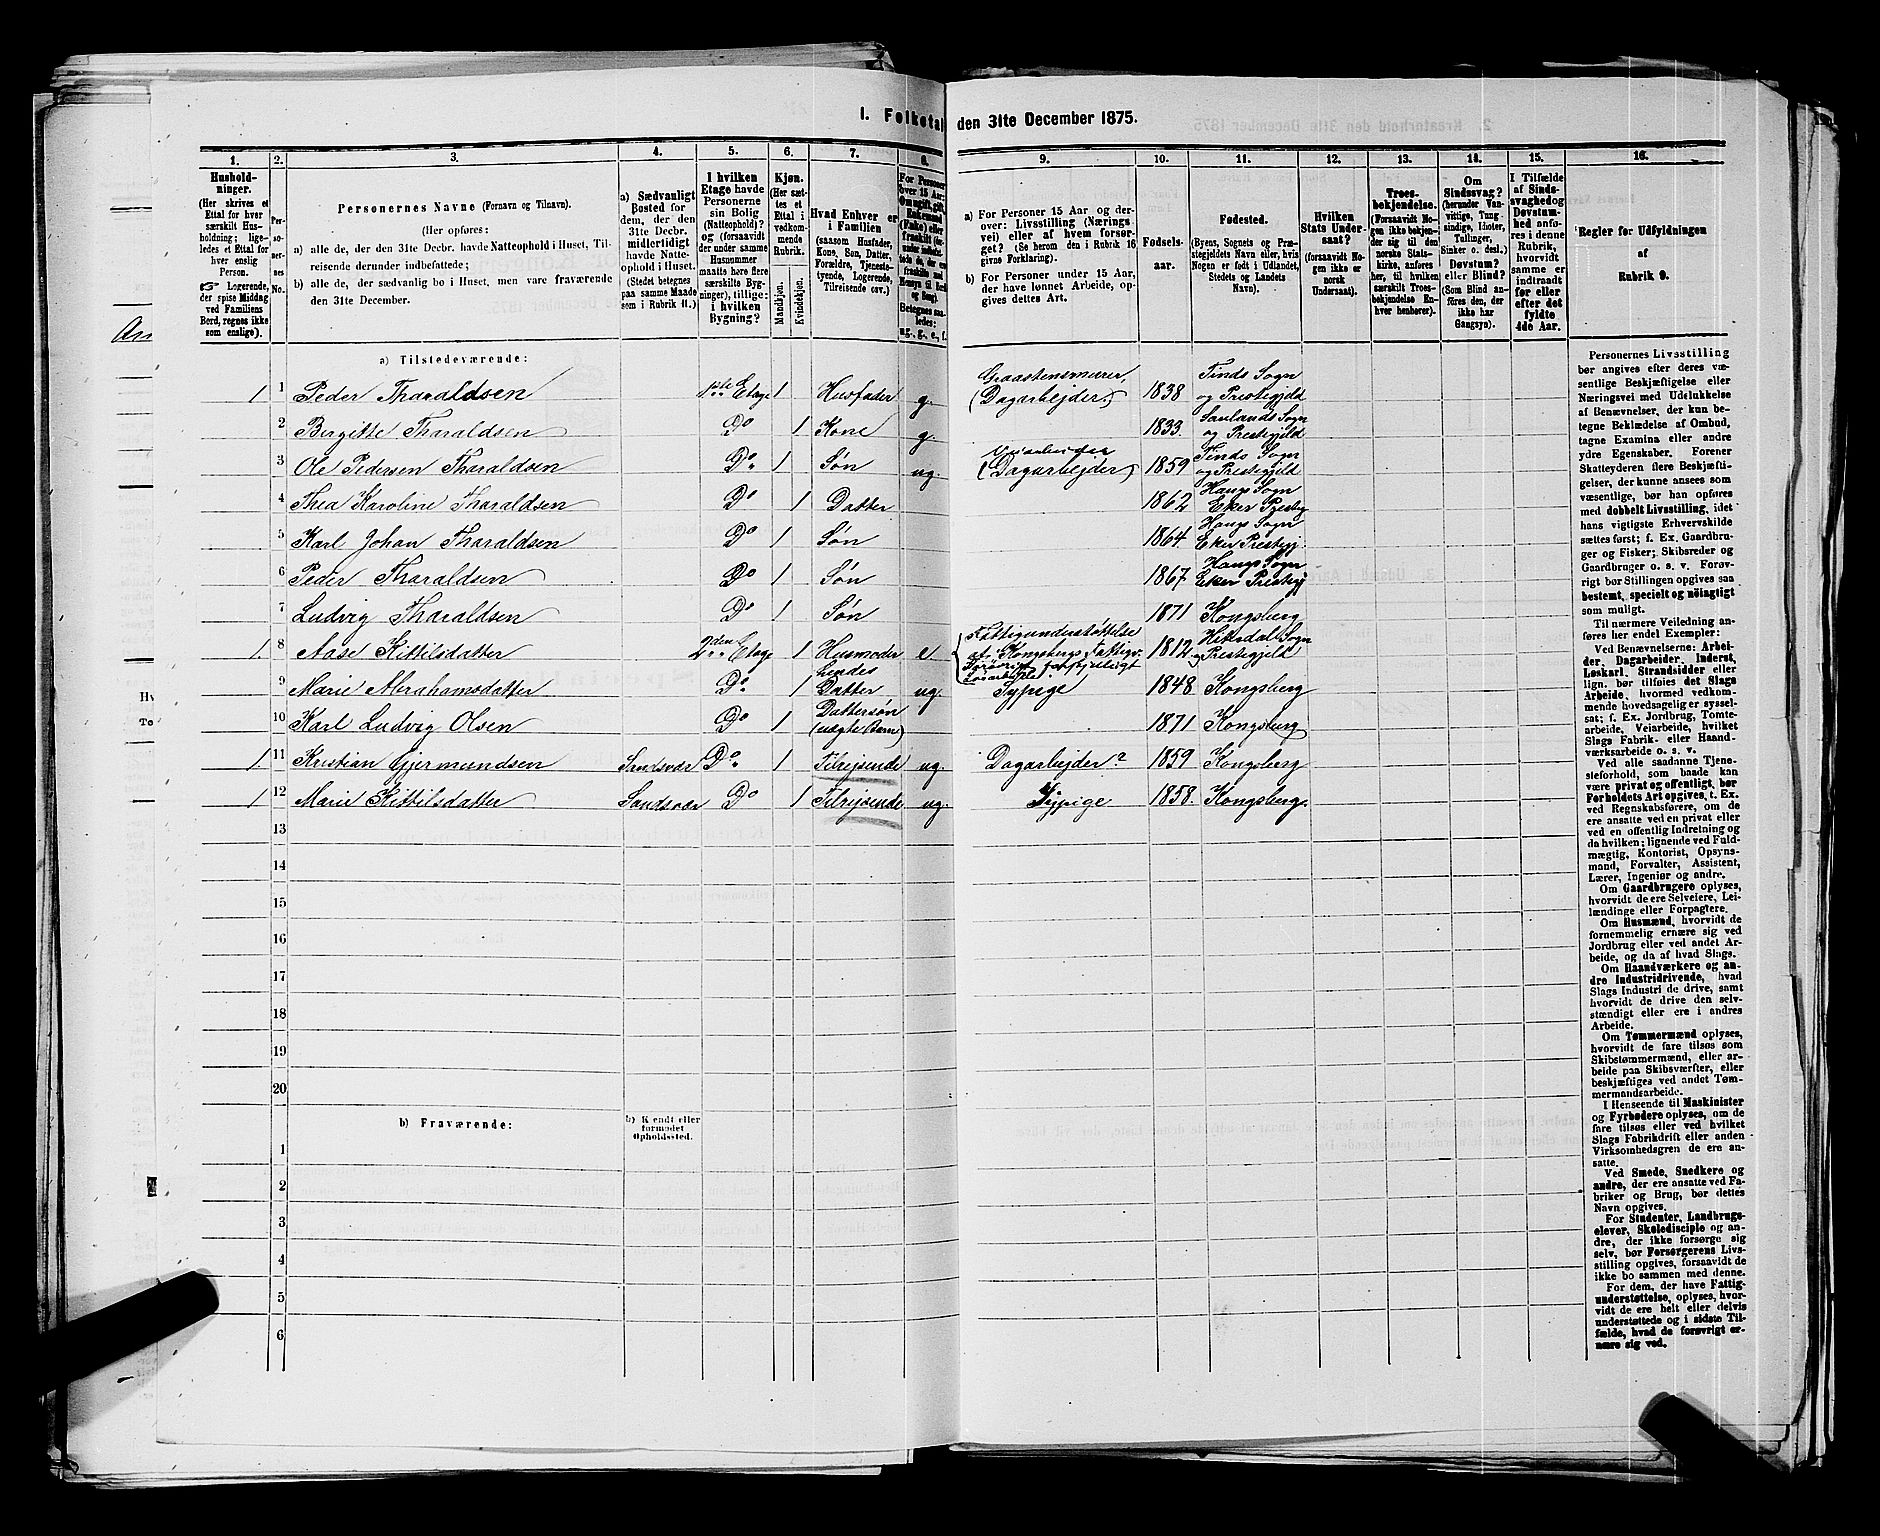 1. Folketal den 31te December 1875.
1. 2. 3. 4. 5. 6. 7. 8. 9. 10. 11. 12. 13. 14. 15. 16.
Husholdninger.
(Her skrives et Ettal for hver særskilt Husholdning; ligeledes et Ettal for hver enslig Person.
Logerende, der spise Middag ved Familiens Bord, regnes ikke som enslige).
Personernes No.
Personernes Navne (Fornavn og Tilnavn).
(Her opføres:
a) alle de, der den 31te Decbr. havde Natteophold i Huset, Tilreisende derunder indbefattede;
b) alle de, der sædvanlig bo i Huset, men vare fraværende den 31te December.
a) Sædvanligt Bosted for dem, der den 31te Decbr. midlertidigt havde Natteophold i Huset. (Stedet betegnes paa samme Maade som i Rubrik 11.)
I hvilken Etage havde Personerne sin Bolig (Natteophold)? og (forsaavidt der under samme Husnummer maatte høre flere særskilte Bygninger), tillige: i hvilken Bygning?
Kjøn.
(Her sættes et Ettal i vedkommende Rubrik.
Mandkjøn. Kvindekjøn.
Hvad Enhver er i Familien
(saasom Husfader, Kone, Søn, Datter, Forældre, Tjenestetyende, Logerende, Tilreisende osv.)
a) For Personer 15 Aar og derover: Livsstilling (Næringsvei) eller af hvem forsørget? (Se herom den i Rubrik 16 givne Forklaring).
b) For Personer under 15 Aar, der have lønnet Arbeide, opgives dettes Art.
Fødselsaar.
Fødested.
(Byens, Sognets og Præstegjeldets Navn eller, hvis Nogen er født i Udlandet, Stedets og Landets Navn).
Hvilken Stats Undersaat?
(forsaavidt Nogen ikke er norsk Undersaat).
Troesbekjendelse.
(Forsaavidt Nogen ikke bekjender sig til den norske Statskirke, anføres her særskilt Troesbekjendelse Enhver henhører).
Om Sindssvag?
(herunder Vanvittige, Tungsindige, Idioter, Tullinger, Sinker o. desl.).
Døvstum? eller Blind?
(Som Blind anføres den, der ikke har Gangsyn).
I Tilfælde af Sindssvaghed og Døvstumhed anføres i denne Rubrik, hvorvidt samme er indtraadt før eller efter det fyldte 4de Aar.
Regler for Udfyldningen af Rubrik 9.
a) Tilstedeværende:
1 1 Peder Tharaldsen 1ste Etage 1 Husfader g. Graastensmurer, (Dagarbejder) 1838 Tinds Sogn og Prestegjeld
2 Birgitte Tharaldsen Do 1 Kone g. 1833. Saulands Sogn og Prestegjeld
3 Ole Pedersen Tharaldsen Do 1 Søn ug. (Dagarbejder) 1859 Tinds Sogn og Prestegjeld
4 Thea Karoline Tharaldsen Do 1 Datter 1862 Haugs Sogn Eker Presteg
5 Karl Johan Tharaldsen Do 1 Søn 1864. Haugs Sogn Eker Prestegj.
6 Peder Tharaldsen Do 1 Søn 1867 Haugs Sogn Eker Prestegj
7 Ludvig Tharaldsen Do 1 Søn 1871 Kongsberg
1. 8 Aase Kittilsdatter 2den Etage 1 Husmoder e Fattigunderstøttelse af Kongsbergs Fattigv. 1812 Hiterdal Sogn og Prestegjeld
9 Marie Abrahamsdatter Do 1 hendes Datter ug. Sypige 1848 Kongsberg
10 Karl Ludvig Olsen Do 1 Dattersøn (uægte Barn) 1871 Kongsberg
1. 11 Kristian Gjermundsen Sandsvær Do 1 Tilrejsende ug. Dagarbejder? 1859 Kongsberg
1 12 Marie Kittilsdatter Sandsvær Do 1 Tilrejsende ug. Sypige 1858. Kongsberg.
13
14
15
16
17
18
19
20
b) Fraværende: b) Kjendt eller formodet Opholdssted.
1
2
3
4
5
6
Personernes Livsstilling
bør angives efter deres væsentlige
Beskjæftigelse eller
Næringsvei med Udelukkelse
af Benævnelser, der kun betegne
Beklædelse af Ombud,
tagne Examina eller andre
ydre Egenskaber. Forener
Skatteyderen flere Beskjæftigelser,
der kunne ansees som
væsentlige, bør han opføres
med dobbelt Livsstilling, idet
hans vigtigste Erhvervskilde
sættes først; f. Ex. Gaardbruger
og Fisker; Skibsreder og
Gaardbruger o. s. v. Forøvrigt
bør Stillingen opgives saa
bestemt, specielt og nöiagtigt
som muligt.
Til nærmere Veiledning anføres
her endel Exempler:
Ved Benævnelserne: Arbeider,
Dagarbeider, Inderst,
Løskarl, Strandsidder eller
lign. bør tilføies det Slags
Arbeide, hvormed vedkommende
hovedsagelig er sysselsat;
f. Ex. Jordbrug, Tomtearbeide,
Veiarbeide, hvilket
Slags Fabrik- eller Haandværksarbeide
o. s. v.
Ved alle saadanne Tjenesteforhold,
som baade kan
være privat og offentligt, bør
Forholdets Art opgives, t. Ex.
ved Regnskabsførere, om de
ere ansatte ved en privat eller
ved en offentlig Indretning og
da hvilken; lignende ved Fuldmægtig,
Kontorist, Opsynsmand,
Forvalter, Assistent,
Lærer, Ingeniør og andre.
Om Gaardbrugere oplyses,
hvorvidt de ere Selveiere, Leilændinge
eller Forpagtere.
Om Husmænd, hvorvidt de
fornemmelig ernære sig ved
Jordbrug eller ved andet Arbeide,
og da af hvad Slags.
Om Haandværkere og andre
Industridrivende, hvad
Slags Industri de drive, samt
hvorvidt de drive den selvstændigt
eller ere i andres
Arbeide.
Om Tømmermænd oplyses,
hvorvidt de fare tilsøs som
Skibstømmermænd, eller arbeide
paa Skibsværfter, eller
beskjæftiges ved andet Tømmermandsarbeide.
I Henseende til Maskinister
og Fyrbødere oplyses, om de
fare tilsøs eller ved hvilket
Slags Fabrikdrift eller anden
Virksomhedsgren de ere ansatte.
Ved Smede, Snedkere og
andre, der ere ansatte ved Fabriker
og Brug, bør dettes
Navn opgives.
For Studenter, Landbrugselever,
Skoledisciple og andre,
der ikke forsørge sig
selv, bør Forsørgerens Livsstilling
opgives, forsaavidt de
ikke bo sammen med denne.
For dem, der have Fattigunderstøttelse,
oplyses, hvorvidt
de ere helt eller delvis
understøttede og i sidste Tilfælde,
hvad de forøvrigt ernære
sig ved.